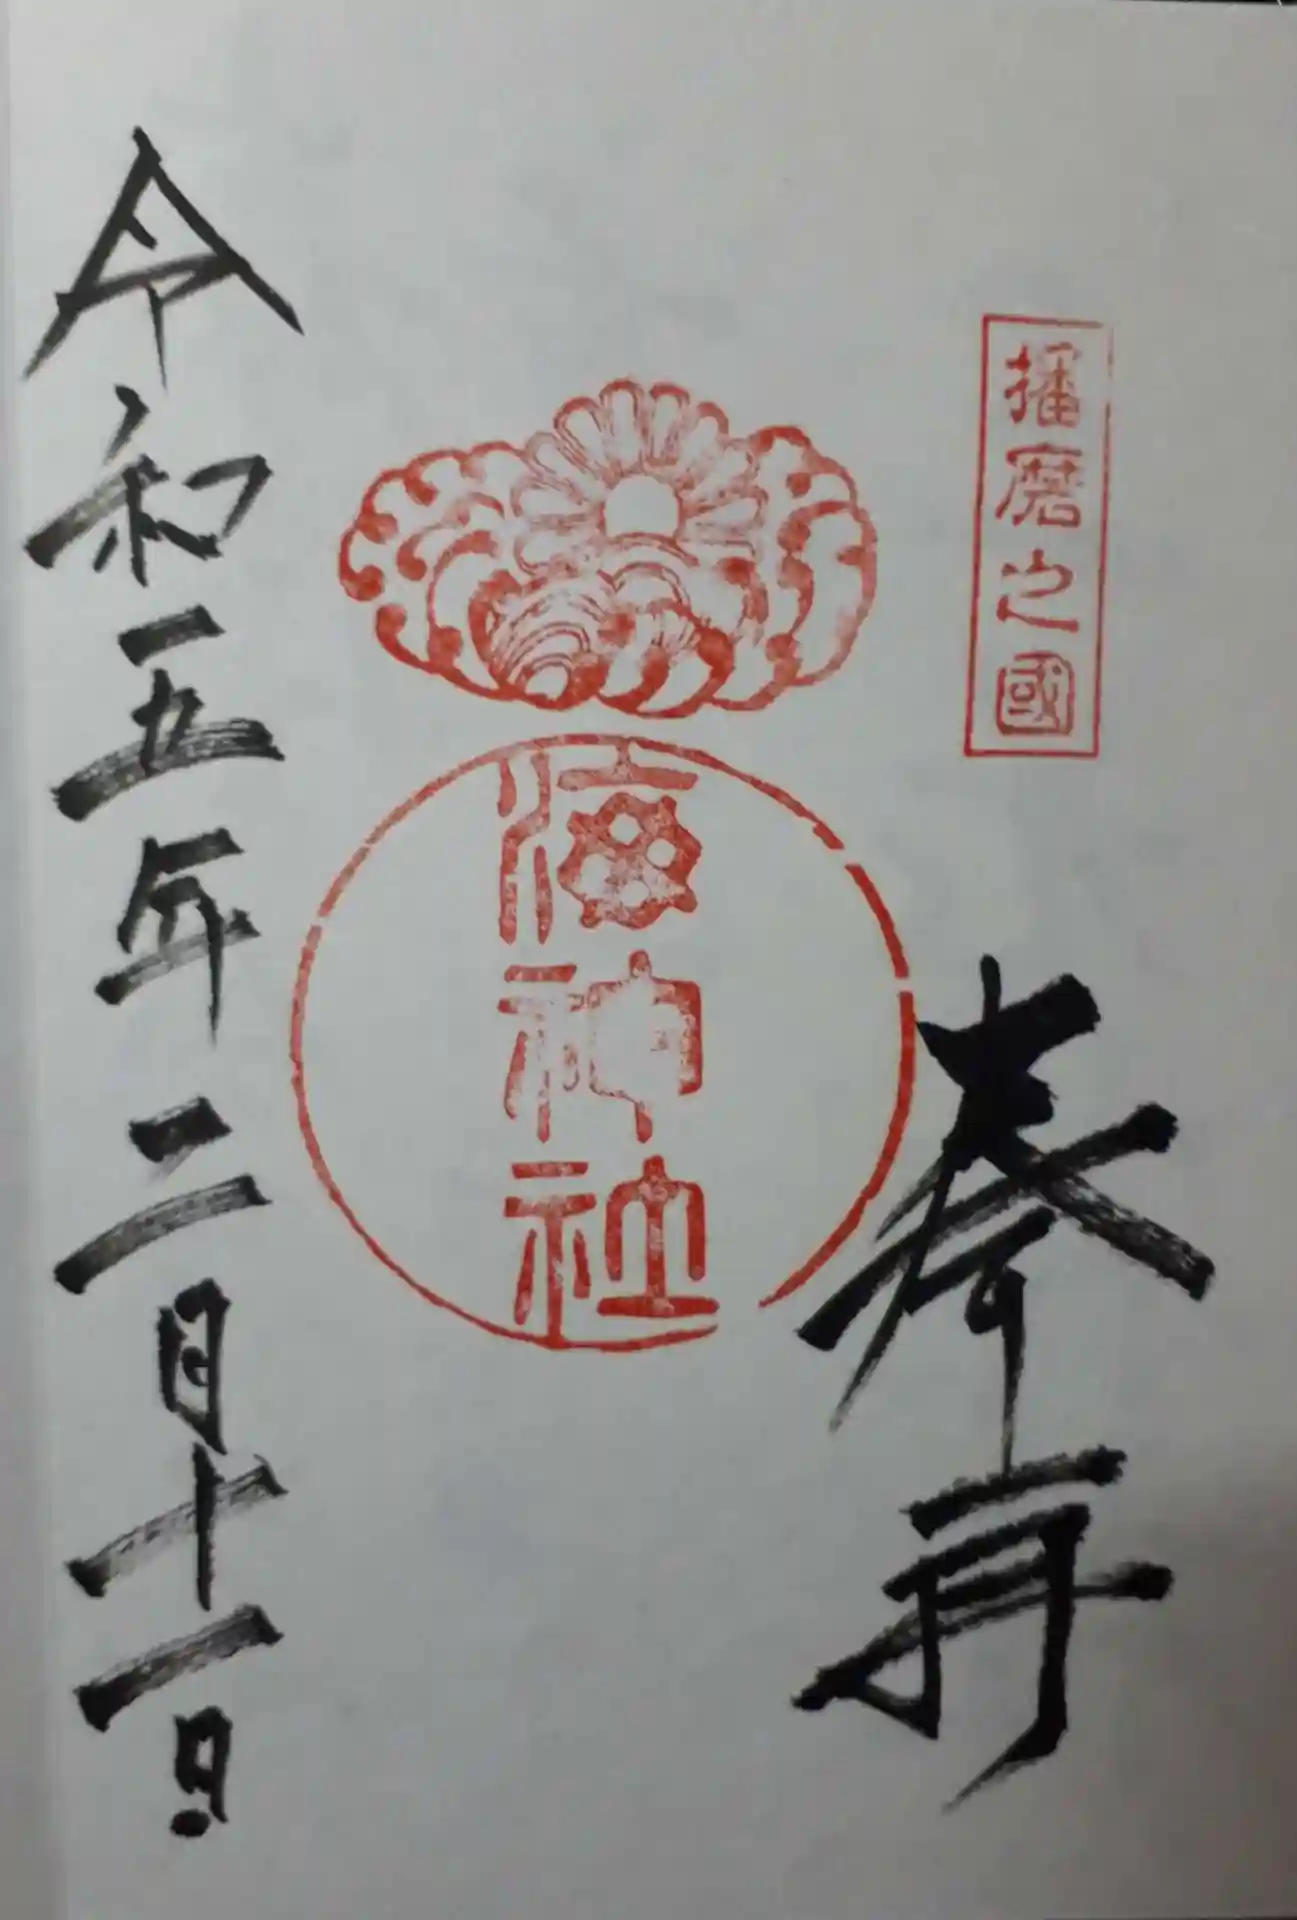 播磨之國
奉拝
海神社
令和五年二月十一日